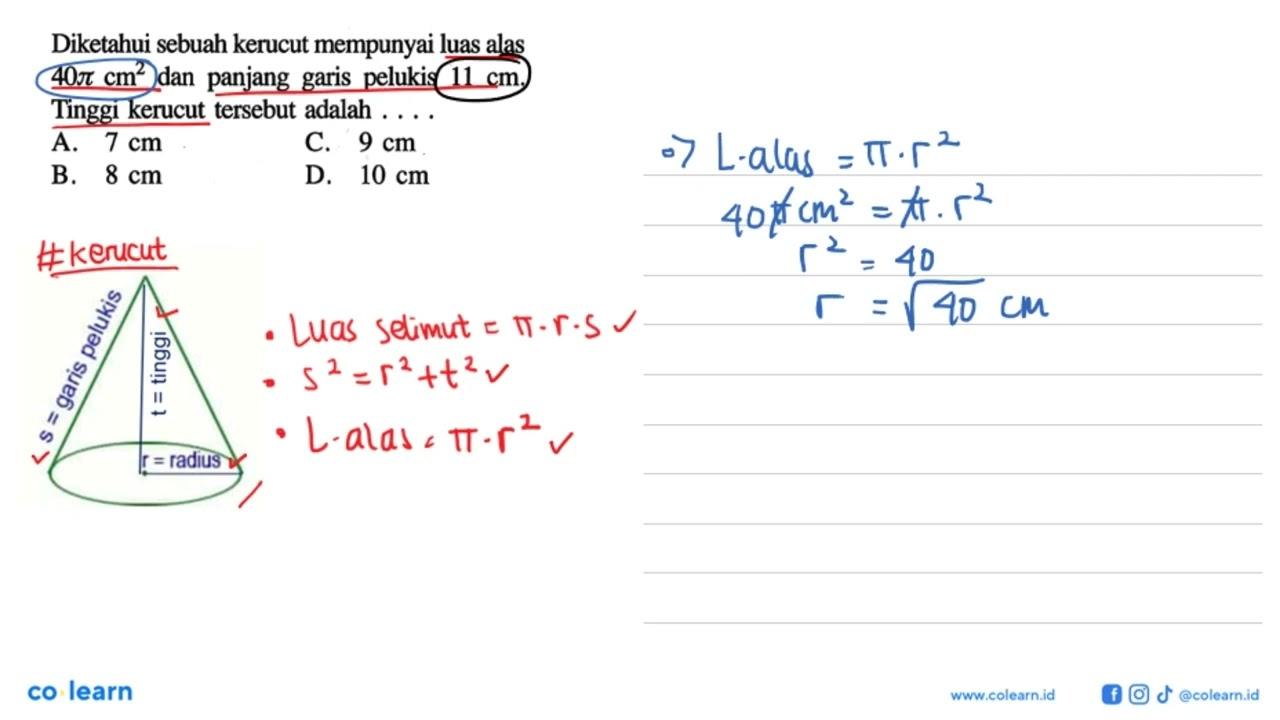 Diketahui sebuah kerucut mempunyai luas alas
40π cm² dan panjang garis pelukis 11 cm.
Tinggi kerucut tersebut adalah . . . .
A. 7 cm
C. 9 cm
B. 8 cm
D. 10 cm
#kerucut
s = garis pelukis
t = tinggi
r = radius
• Luas selimut = π·r·s ✓
• s² = r² + t² ✓
• L·alas = π·r² ✓
=> L·alas = π·r²
40π cm² = π·r²
r² = 40
r = √40 cm
co·learn
www.colearn.id
@colearn.id